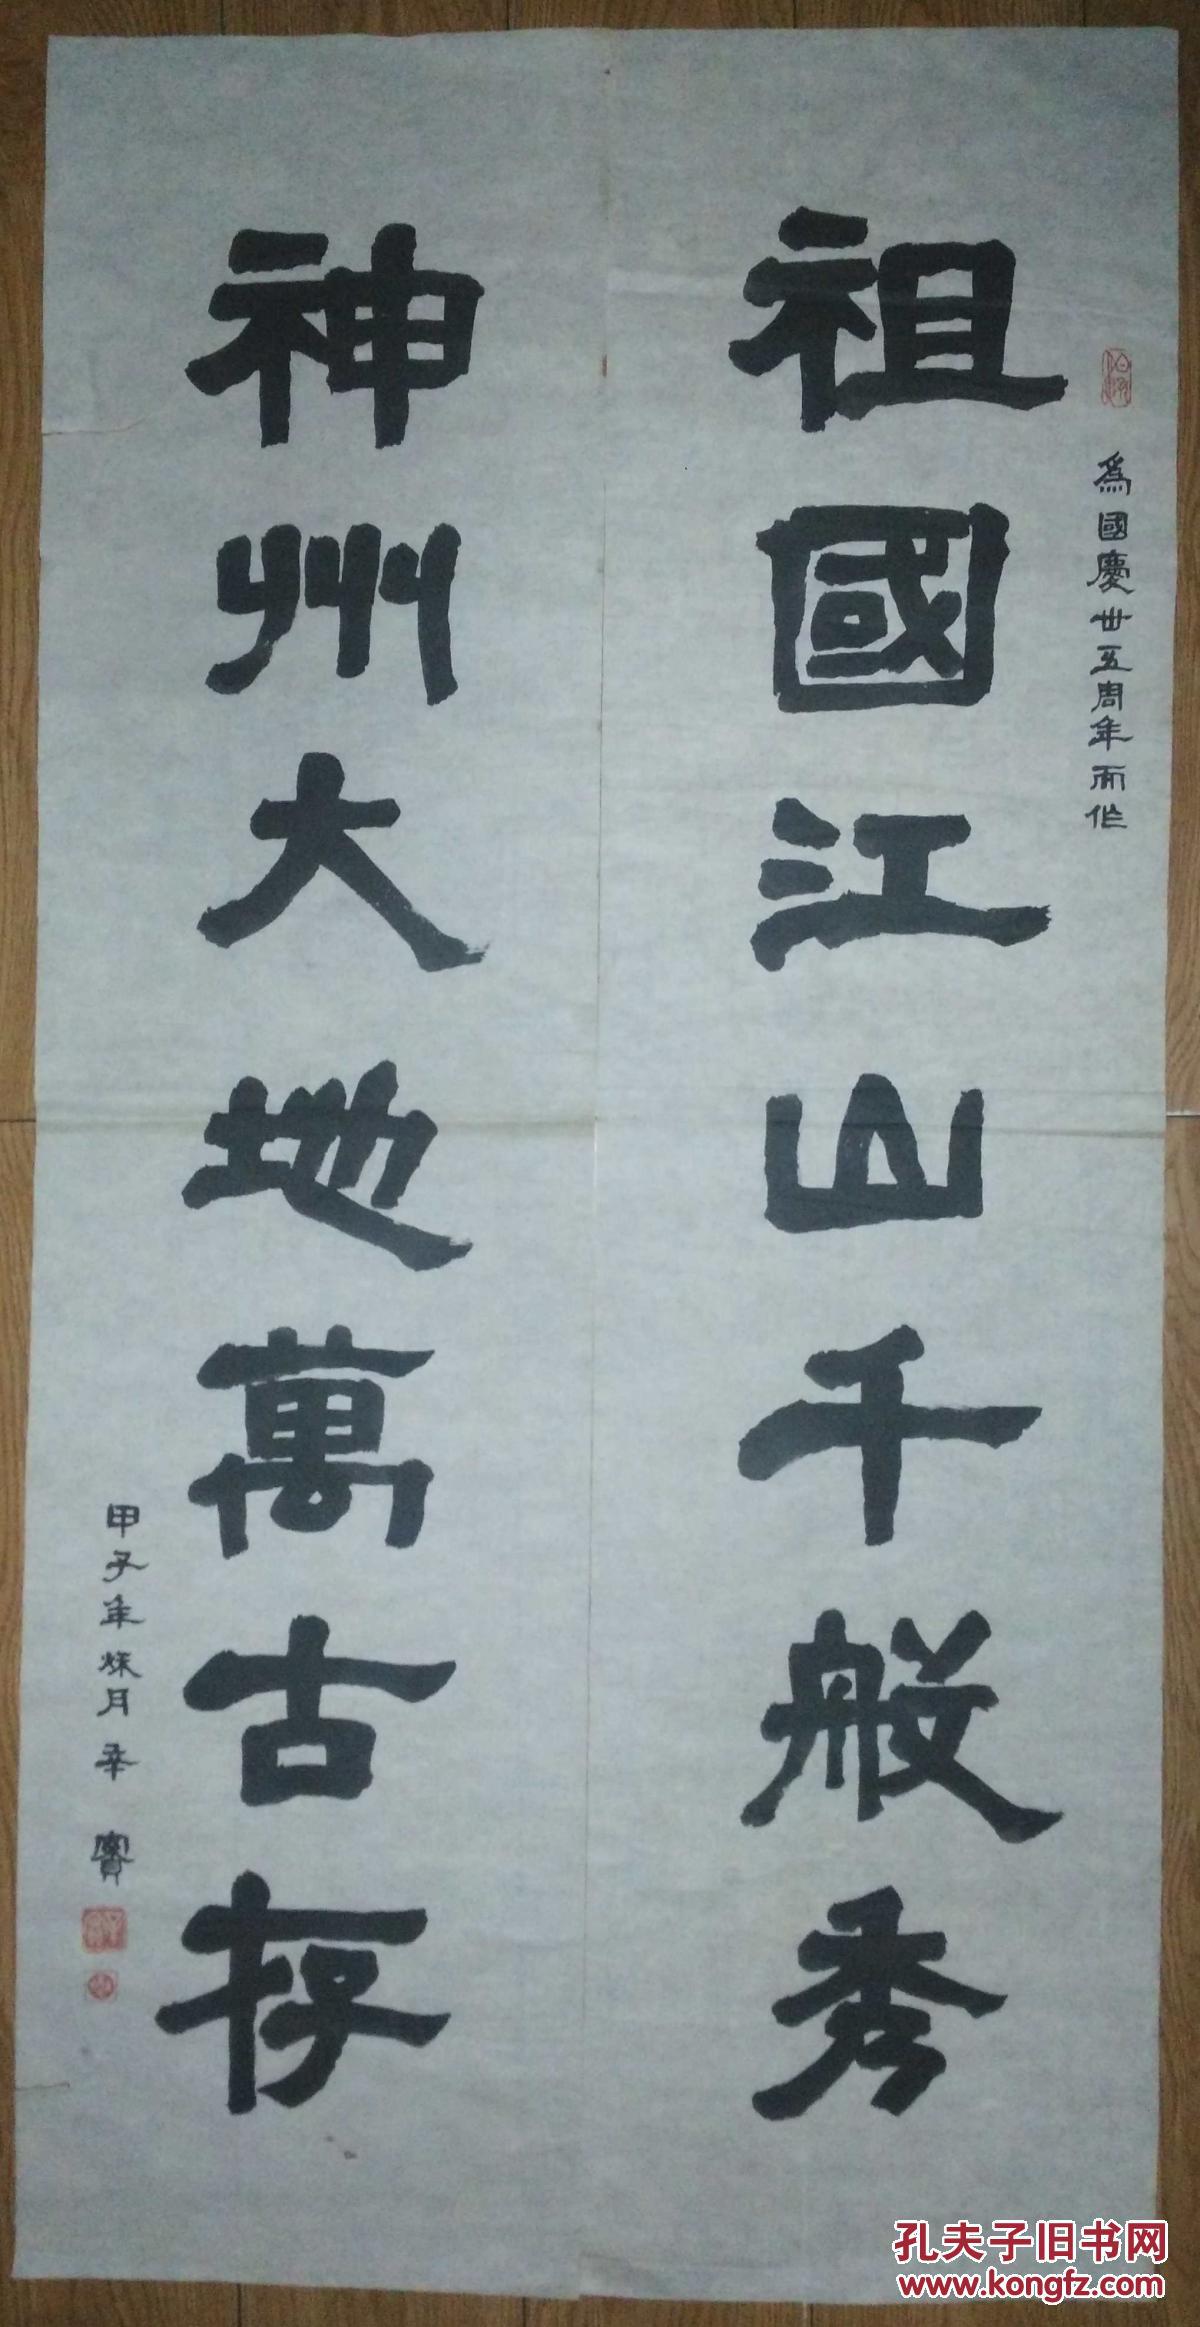 為國慶卅五周年而作
祖國江山千般秀
神州大地萬古存
甲子年秌月辛寶
孔夫子旧书网
www.kongfz.com